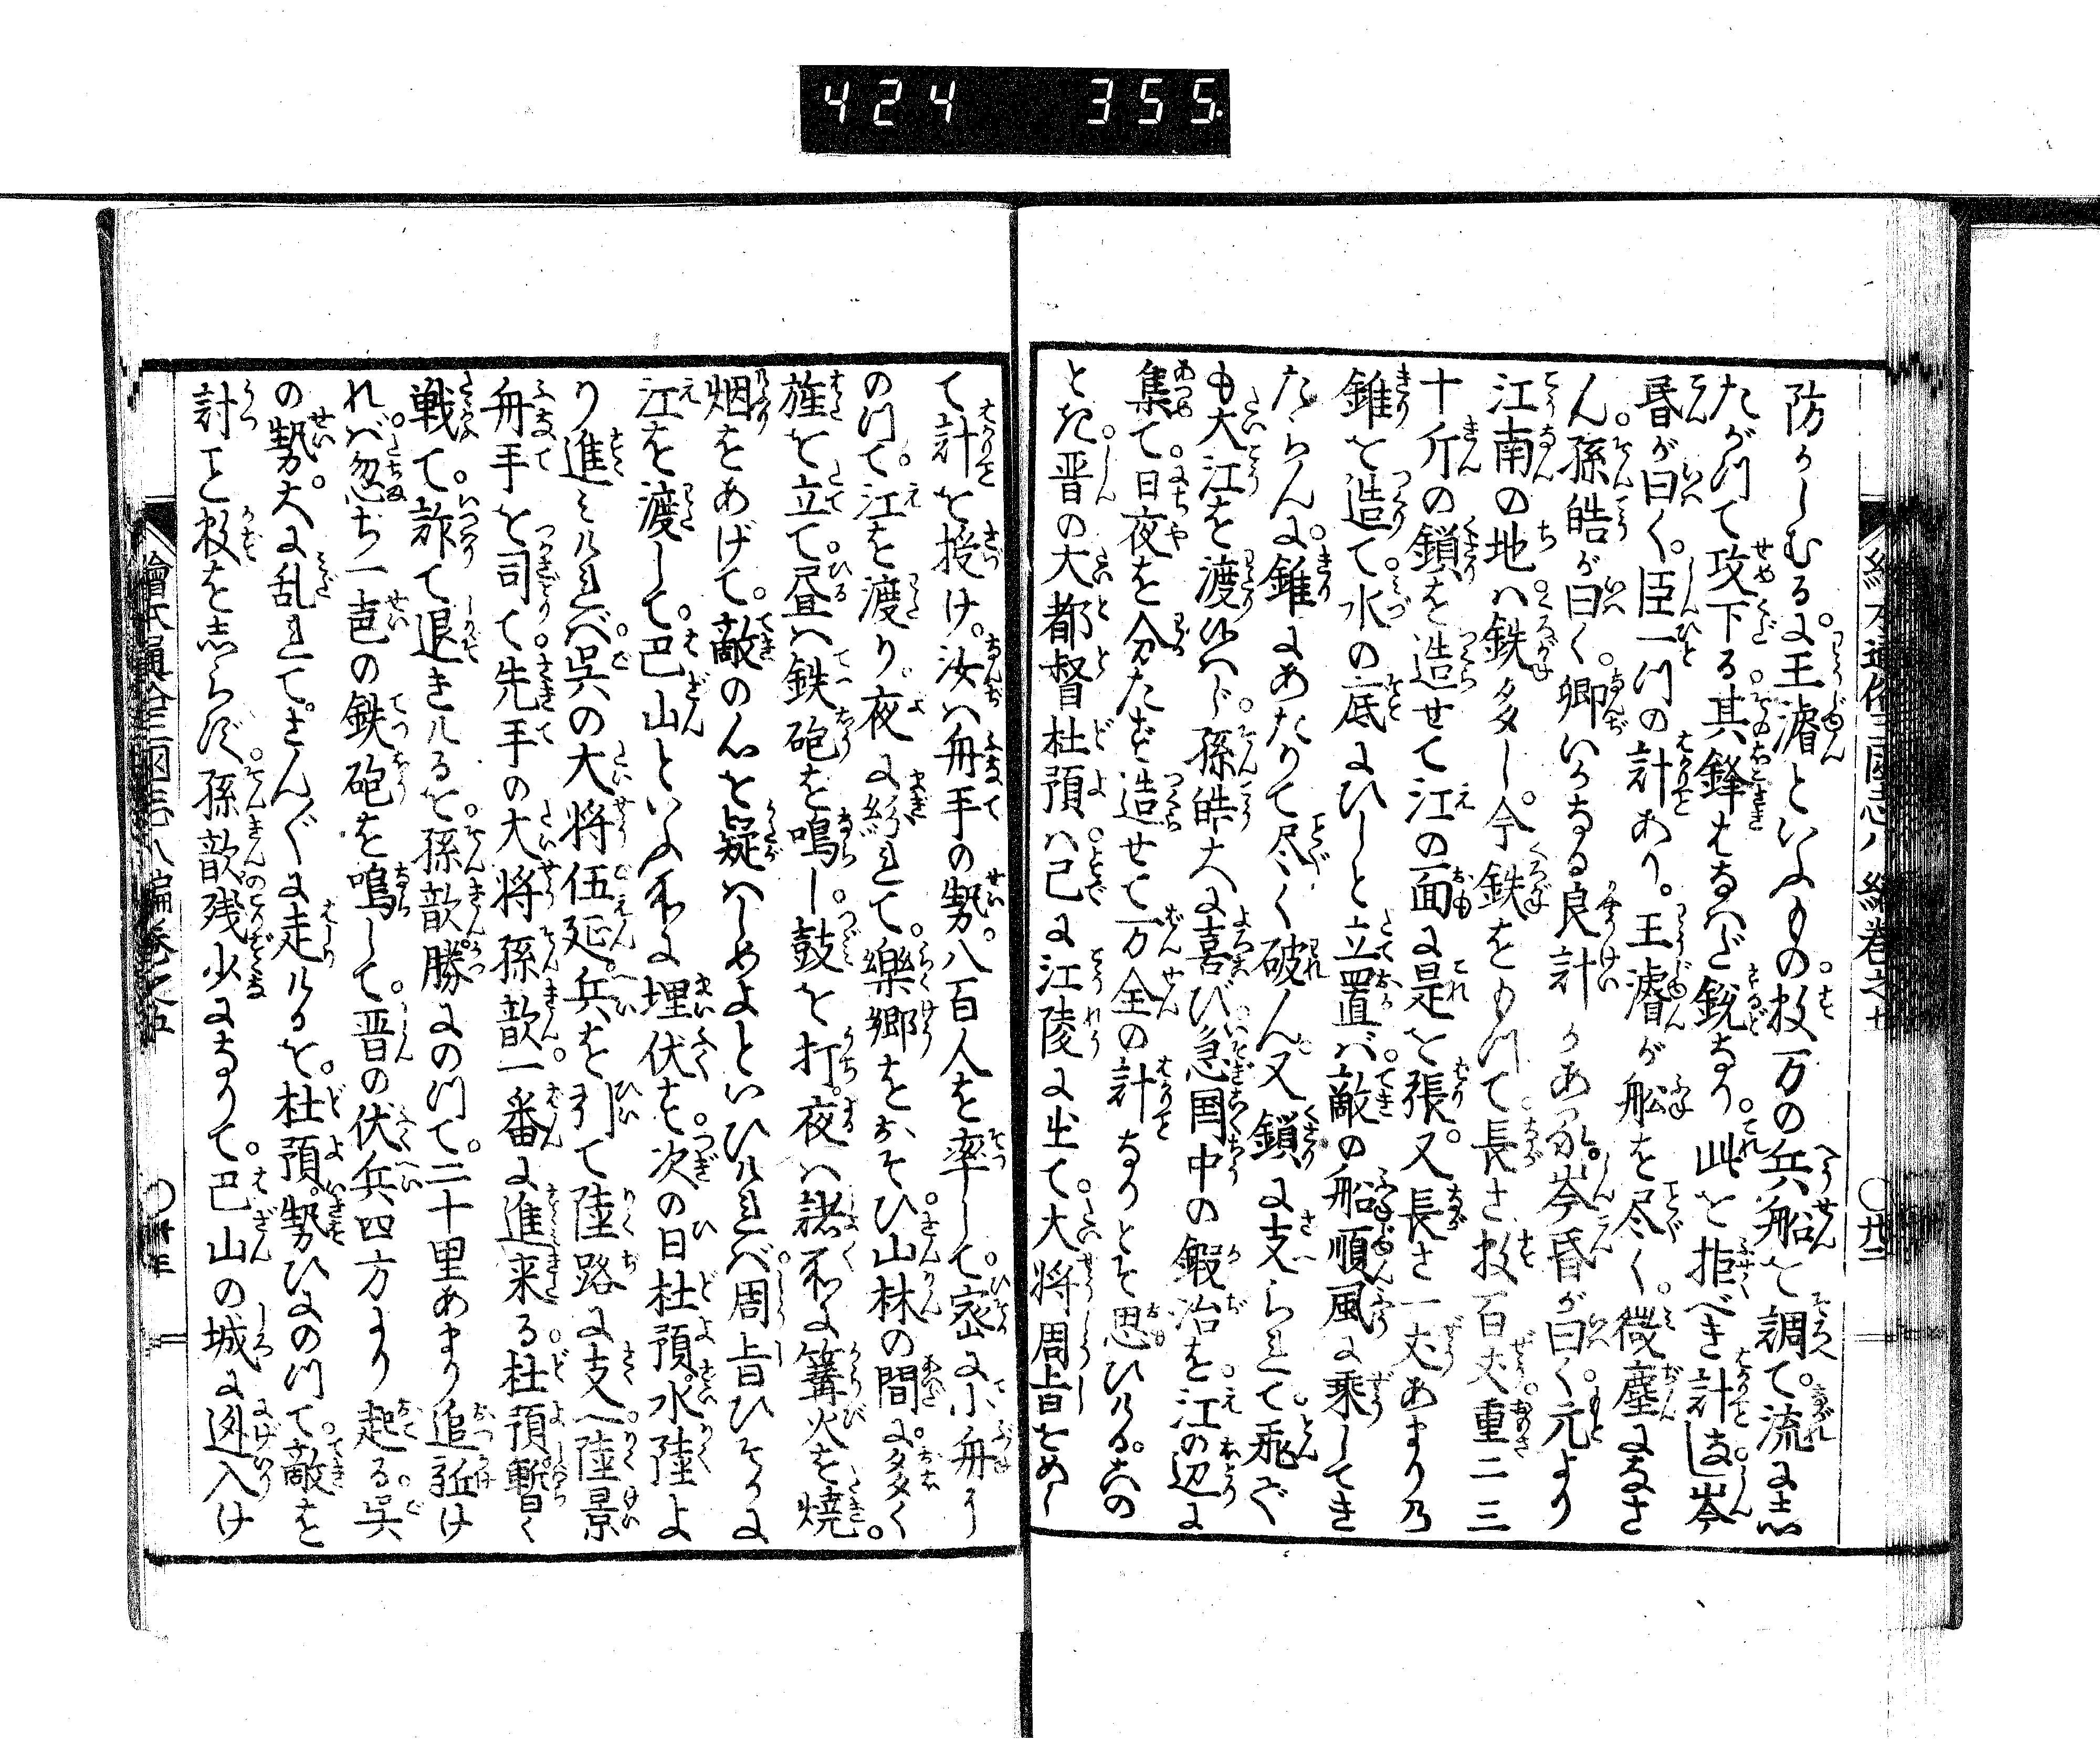 424 355.
防かしむるに王濬といふもの数万の兵船を調て流に志
たがつて攻下る其鋒はなはだ鋭なり此を拒べき計しな岑
昏が曰く臣一つの計あり王濬が船を尽く微塵になさ
ん孫皓が曰く卿いかなる良計かある岑昏が曰く元より
江南の地ハ鉄多し今鉄をもつて長さ数百丈重二三
十斤の鎖を造せて江の面に是を張又長さ一丈あまり乃
錐を造て水の底にひしと立置バ敵の船順風に乗してき
たらんに錐にあたりて尽く破ん又鎖に支られて飛が
も大江を渡候ハじ孫皓大に喜び急国中の鍛冶を江の辺に
集て日夜を分たず造せて万全の計なりとぞ思ひける去の
とき晋の大都督杜預ハ已に江陵に出て大将周旨をめし
て計を授け汝ハ舟手の勢八百人を率して密に小舟に
のつて江を渡り夜に紛れて樂郷をおそひ山林の間に多く
旌を立て昼ハ鉄砲を鳴し鼓を打夜ハ諸所に篝火を焼
烟をあげて敵の心を疑ハしめよといひけれバ周旨ひそかに
江を渡して巴山といふ所に埋伏す次の日杜預水陸よ
り進ミけれバ呉の大将伍延兵を引て陸路に支へ陸景
舟手を司て先手の大将孫歆一番に進来る杜預暫く
戦て詐て退きけるを孫歆勝にのつて二十里あまり追詰け
れバ忽ち一声の鉄砲を鳴して晋の伏兵四方より起る呉
の勢大に乱れてさんぐに走けるを杜預勢ひにのつて敵を
討こと数を志らず孫歆残少になりて巴山の城に迯入け
繪本通俗三国志八 編巻之五 〇廿二
繪本通俗三国志八編巻之五 〇廿三